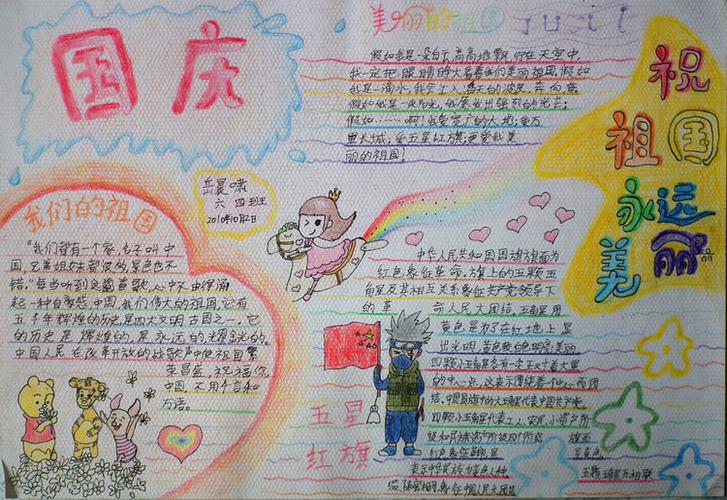 国庆
美丽的祖国
假如我是一朵白云,高高地飘 在天空中,
我一定把眼睛 美丽祖国,假如
我是一滴水,我会汇入
假如我是一 光,我 发出强烈的光芒;
假如……啊!我爱宽广的大地;爱万
里长城;爱五星红旗,更爱我美
丽的祖国!
祝
祖国
永远
美丽
岳晨啸
六四班
2010年10月2日
我们的祖国
"我们都有一个家,名字叫中
国,兄弟姐妹都很多,景色也不
错,"每当听到这首歌,心中不由得涌
起一种自豪感,中国,我们伟大的祖国,它有
五千年辉煌的历史,是四大文明古国之一。它
的历史是辉煌的,是永远的,耀金光的。
中国人民在改革开放的战歌声中使祖国繁
荣昌盛,祝福你
中国,不用千言和
万语。
中华人民共和国国旗旗面为
红色,象征革命,旗上的五颗五
角星及其相互关系象征共产党领导下
的革命人民大团结。五角星用
黄色是为了在红地上显
出光明,黄色较白色明亮美丽
四颗小五角星各有一尖正对着大星
的中心点,这表示围绕着一个中心而团
结。中国国旗中的大五角星代表中国共产党,
四颗小五角星代表工人、农民、小资产阶
级和民族资产阶级四个阶级 旗面
红色象征革命,星 呈黄色
表示中华民族为黄色人种 五颗五角星互相联
缀、疏密相间,象征中国人民大团结
五星
红旗